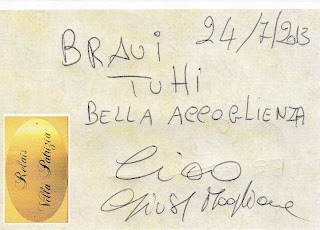 24/7/2013
BRAVI
TUTTI
BELLA ACCOGLIENZA
Ciao
Relais
Villa Patrizia